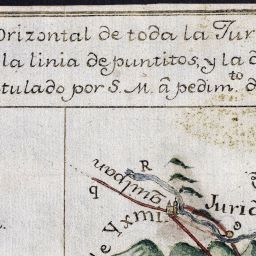 Orizontal de toda la Jur
la linia de puntitos, y la
tulado por S. M. â pedim.to d
R
quilpan
q
Jurid
de Yxmi